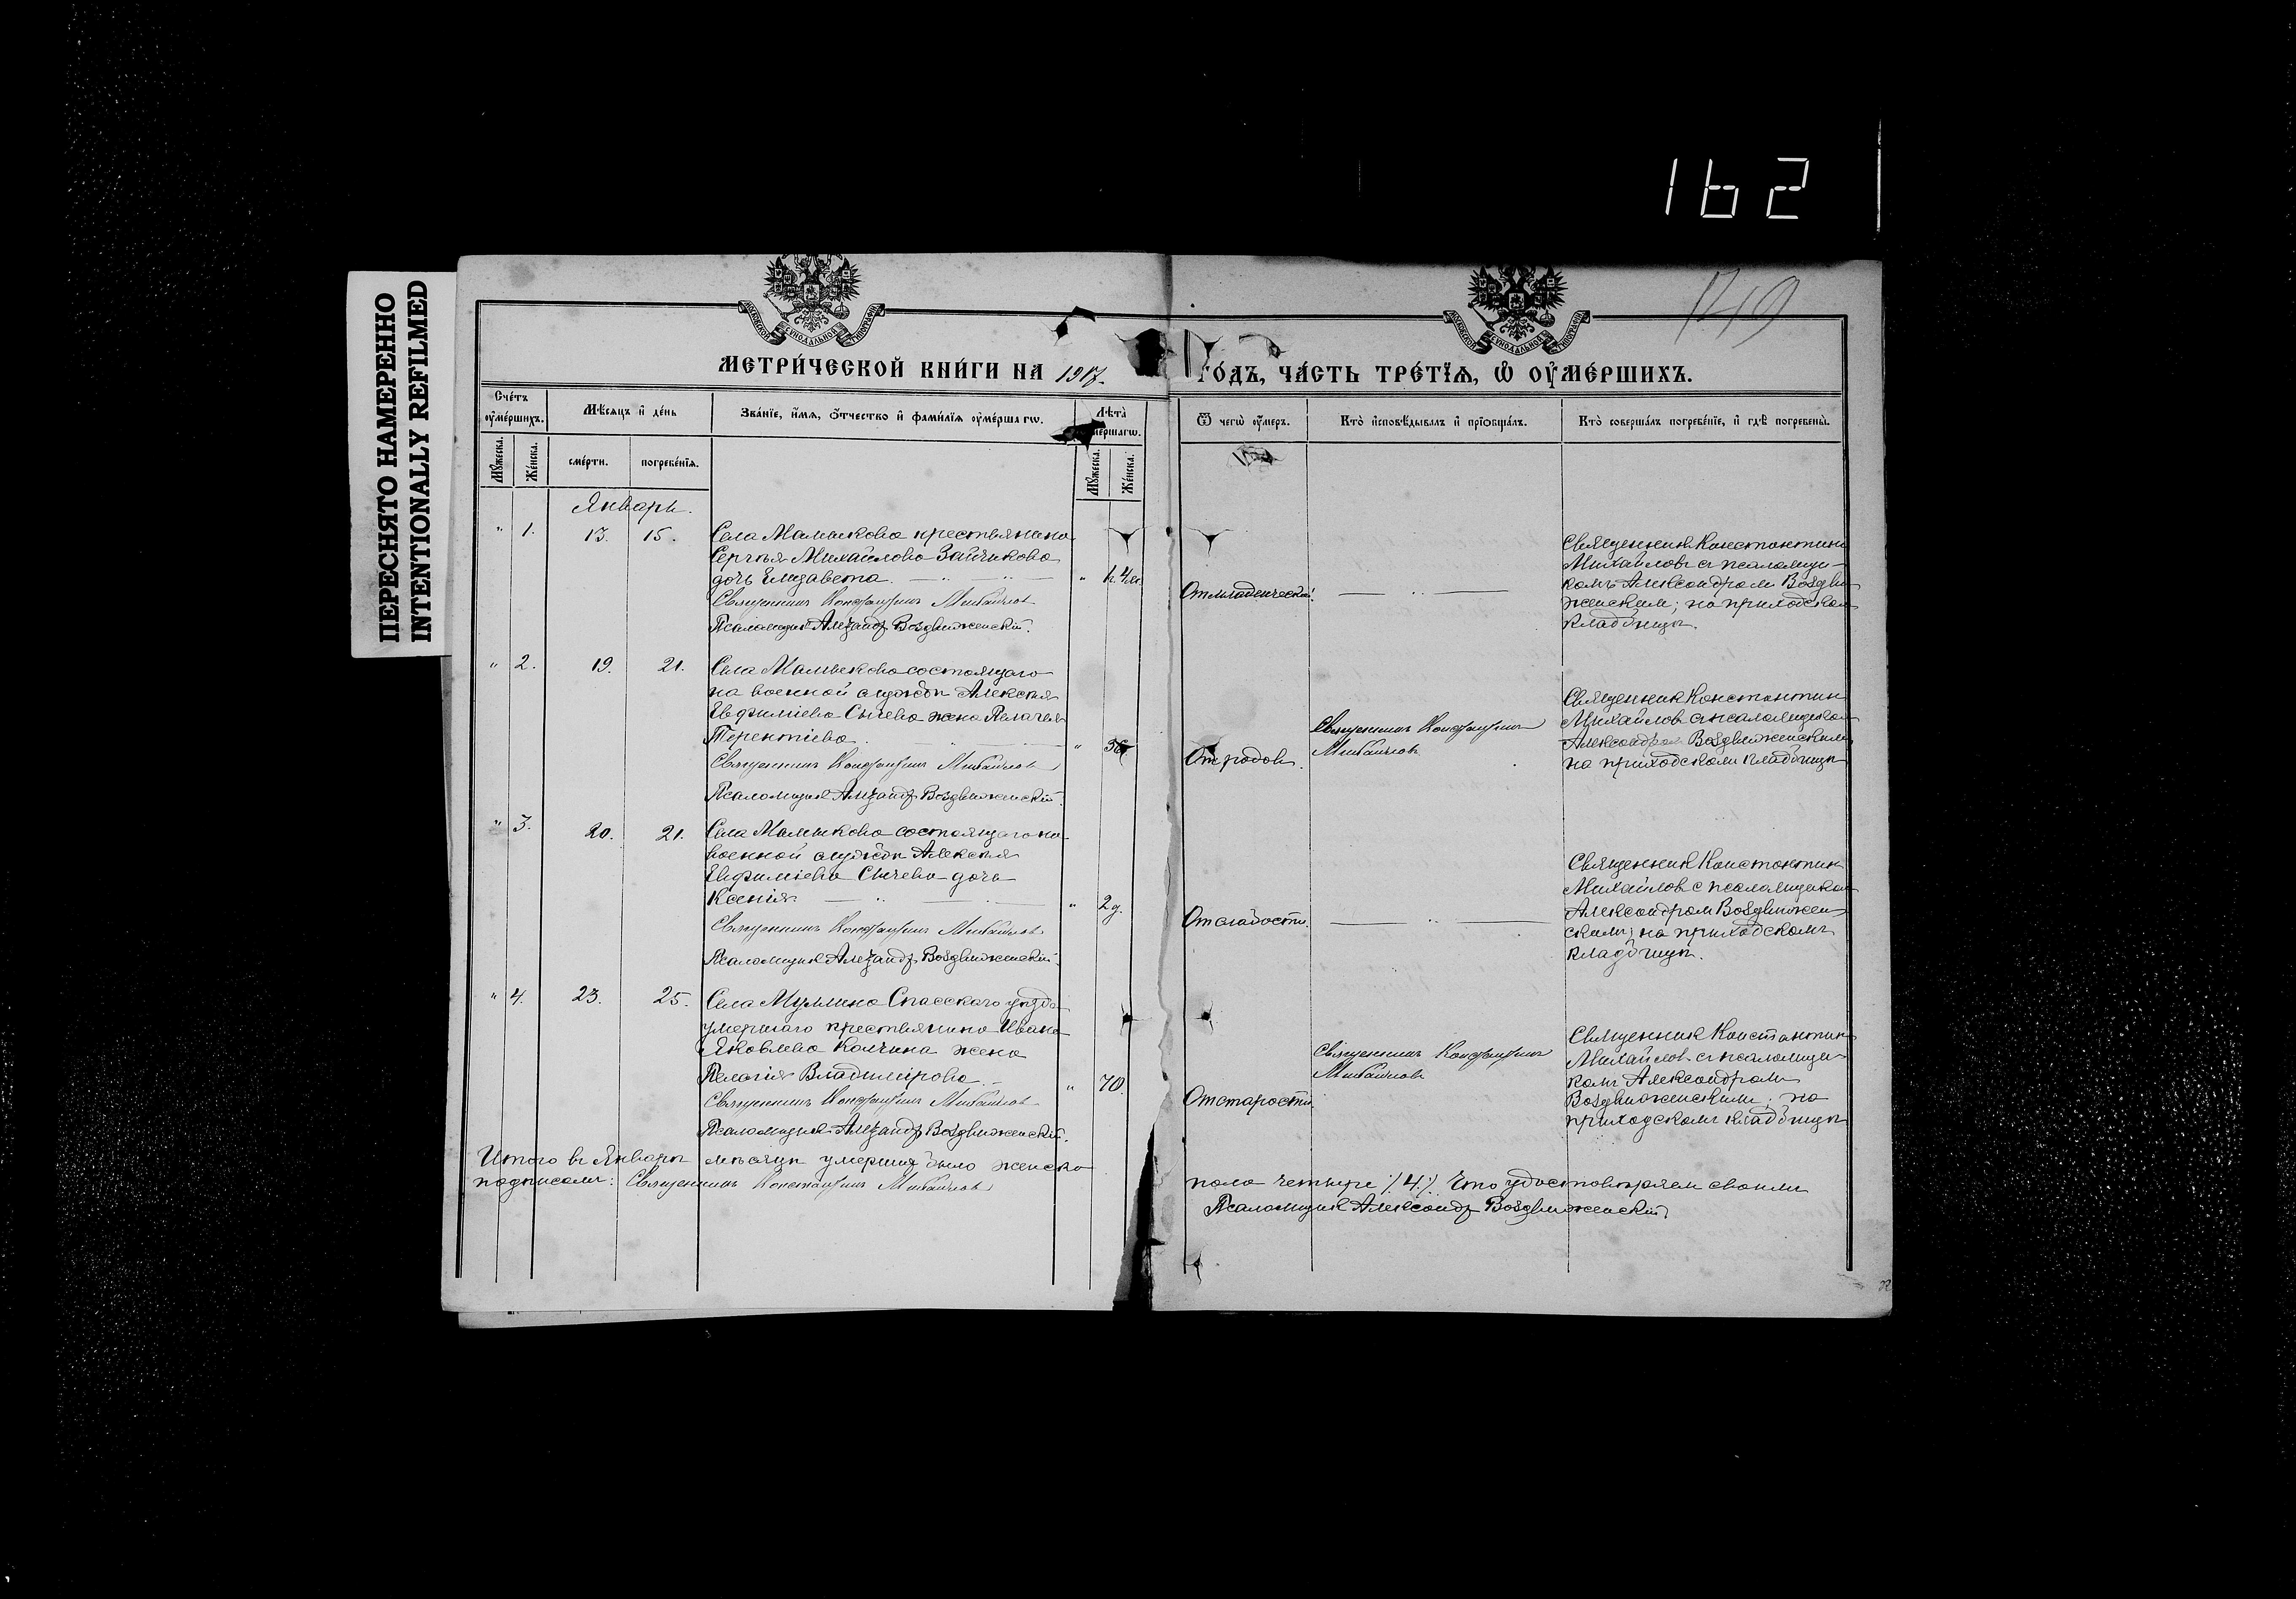 162
ПЕРЕСНЯТО НАМЕРЕННО
INTENTIONALLY REFILMED
149
МОСКОВСКОЙ СѴНОДАЛЬНОЙ ТИПОГРАФІИ
МОСКОВСКОЙ СѴНОДАЛЬНОЙ ТИПОГРАФІИ
МЕТРИ́ЧЕСКОЙ КНИ́ГИ НА 1917. ГО́ДЪ, ЧА́СТЬ ТРЕ́ТЇѦ, Ѽ ОУ҆МЕ́РШИХЪ.
Сче́тъ оу҆ме́ршихъ.
Мꙋ́жеска.
Же́нска.
Мѣ́сѧцъ и҆ де́нь
сме́рти.
погребе́нїѧ.
Зва́нїе, и҆́мѧ, ѻ҆́тчество и҆ фами́лїѧ оу҆ме́ршагѡ.
Лѣ̀та
оу҆ме́ршагѡ.
Мꙋ́жеска.
Же́нска.
Ѿ чегѡ̀ оу҆́меръ.
Кто̀ и҆сповѣ́дывалъ и҆ прїѻбща́лъ.
Кто̀ соверша́лъ погребе́нїе, и҆ гдѣ̀ погребены̀.
Январь.
" 1. 13. 15. Села Мамыкова крестьянина
Сергѣя Михайлова Зайчикова
дочь Елизавета. " 4 м.
Священникъ Константинъ Михайлов
Псаломщик Александр Воздвиженскій.
От младенческой.
Священник Константин
Михайловъ с псаломщи-
комъ Александром Воздви-
женским; на приходском
кладбищѣ.
" 2. 19. 21. Села Мамыкова состоящаго
на военной службѣ Алексѣя
Евфиміева Сычева жена Пелагея
Терентіева. " 36
Священникъ Константинъ Михайлов
Псаломщик Александр Воздвиженскій.
От родов.
Священникъ Константинъ
Михайлов
Священник Константин
Михайлов с псаломщиком
Александром Воздвиженским
на приходском кладбищѣ
" 3. 20. 21. Села Мамыкова состоящаго на
военной службѣ Алексѣя
Евфиміева Сычева дочь
Ксенія " 2 г.
Священникъ Константинъ Михайлов
Псаломщик Александр Воздвиженскій.
От слабости.
Священник Константин
Михайлов с псаломщиком
Александром Воздвижен-
ским; на приходскомъ
кладбищѣ.
" 4. 23. 25. Села Муллина Спасскаго уѣзда
умершаго крестьянина Ивана
Яковлева Колчина жена
Пелагія Владимірова. " 70.
Священникъ Константинъ Михайлов
Псаломщик Александр Воздвиженскій.
От старости
Священникъ Константинъ
Михайлов
Священник Константин
Михайлов с псаломщи-
комъ Александром
Воздвиженским; на
приходскомъ кладбищѣ
Итого въ Январѣ мѣсяцѣ умерших было женска пола четыре /4./ Что удостовѣряем своими
подписами: Священникъ Константинъ Михайлов Псаломщик Александр Воздвиженскій